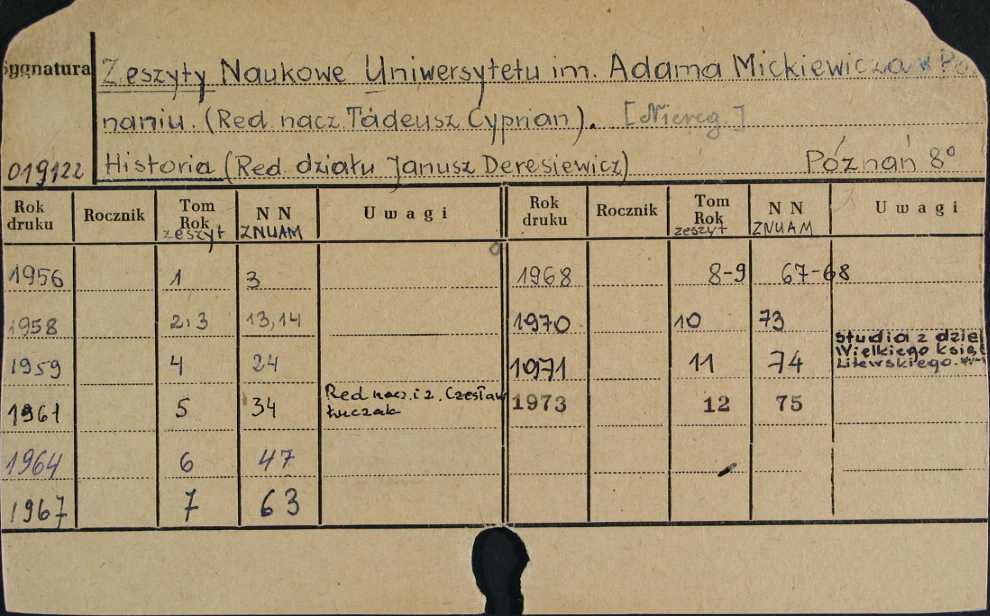 Sygnatura Zeszyty Naukowe Uniwersytetu im. Adama Mickiewicza w Poz
naniu. (Red nacz. Tadeusz Cyprian). [Niereg.]
019122 Historia (Red. działu Janusz Deresiewicz) Poznań 8°
Rok druku Rocznik Tom Rok zeszyt NN ZNUAM Uwagi Rok druku Rocznik Tom Rok zeszyt NN ZNUAM Uwagi
1956 1 3 1968 8-9 67-68
1958 2,3 13,14 1970 10 73
1959 4 24 1971 11 74 Studia z dziej Wielkiego księ Litewskiego.
1961 5 34 Red nacz. i z. Czesław Łuczak 1973 12 75
1964 6 47
1967 7 63